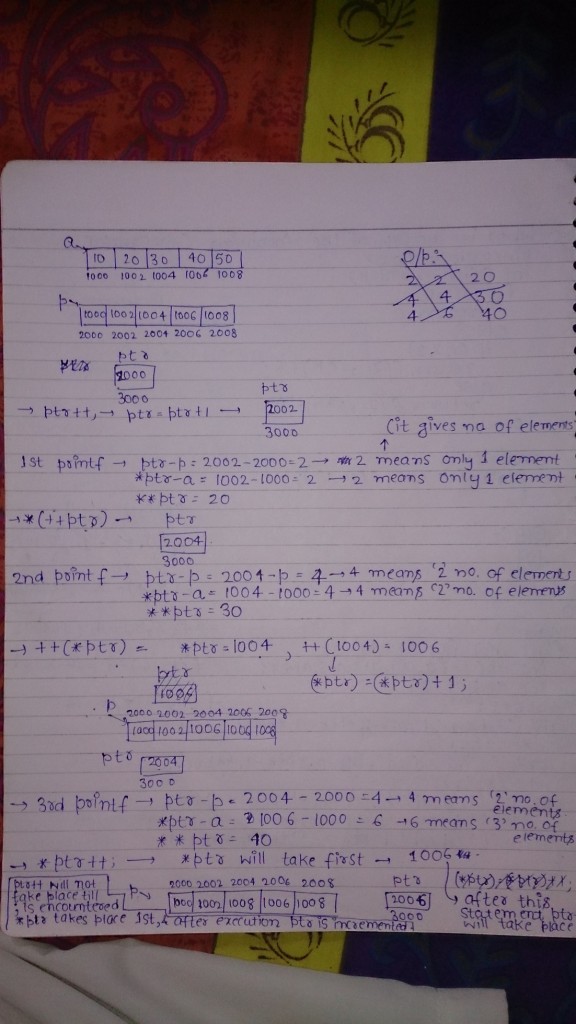 a
10 20 30 40 50
1000 1002 1004 1006 1008
O/p:
2 2 20
4 4 30
4 6 40
p
1000 1002 1004 1006 1008
2000 2002 2004 2006 2008
ptr
2000
3000
→ ptr++, → ptr = ptr+1 →
ptr
2002
3000
(it gives no of elements
1st pointf → ptr-p = 2002-2000=2 → 2 means only 1 element
*ptr-a = 1002-1000= 2 → 2 means only 1 element
**ptr = 20
→ *(++ptr) → ptr
2004
3000
2nd pointf → ptr-p = 2004-p = 4 → 4 means '2' no. of elements
*ptr-a = 1004-1000=4 → 4 means '2' no. of elements
**ptr = 30
→ ++(*ptr) = *ptr=1004, ++(1004)= 1006
(*ptr) = (*ptr)+1;
ptr
p
2000 2002 2004 2006 2008
1000 1002 1006 1006 1008
ptr 2004
3000
→ 3rd pointf → ptr-p = 2004-2000=4 → 4 means '2' no. of elements
*ptr-a = 1006-1000 = 6 → 6 means '3' no. of elements
**ptr = 40
→ *ptr++; → *ptr will take first → 1006
ptr++ will not take place till ; is encountered
p
2000 2002 2004 2006 2008
1000 1002 1008 1006 1008
ptr
2006
3000
after this statement, ptr will take place
*ptr takes place 1st, & after execution ptr is incremented